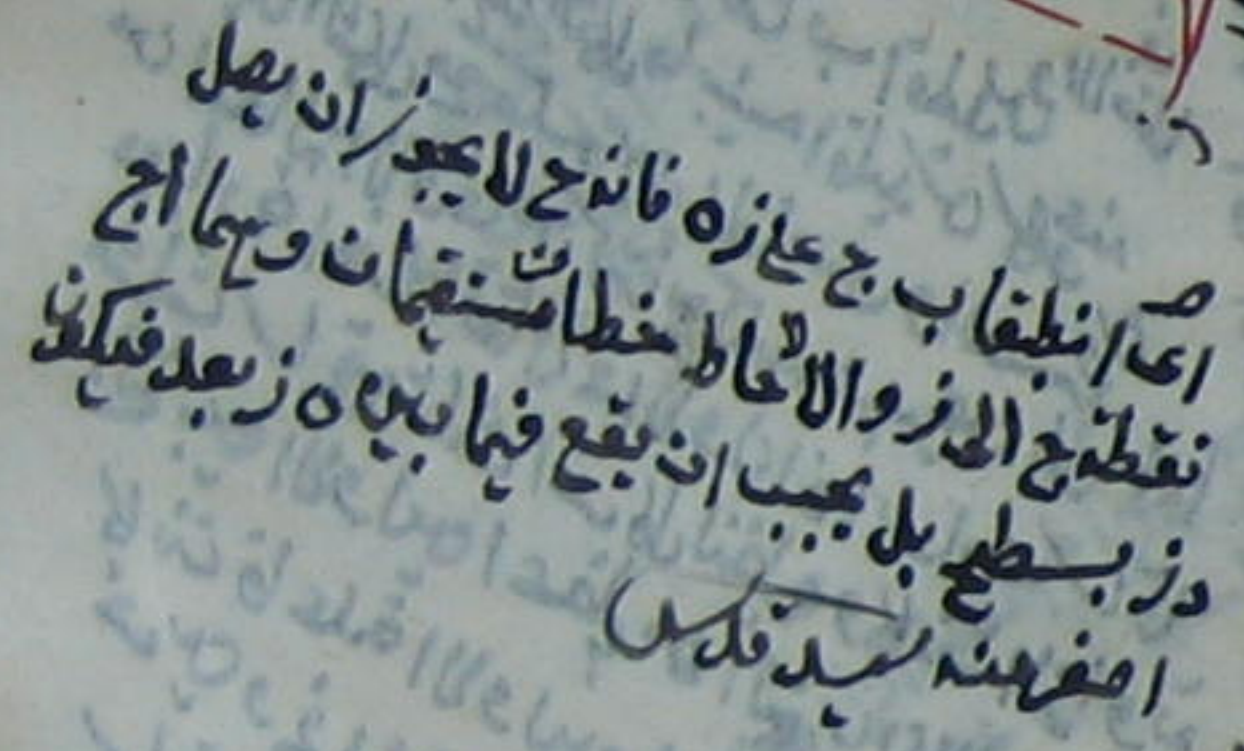 اى انطبقا ب ج على زه فانه ح لا يجوز ان يصل
نقطة ج الى ز والا لاحاط خطان مستقيمان وهما اج
دز بسطح بل يجب ان يقع فيما بين ه ز بعد فيكون
اصغر منه سيد قدس